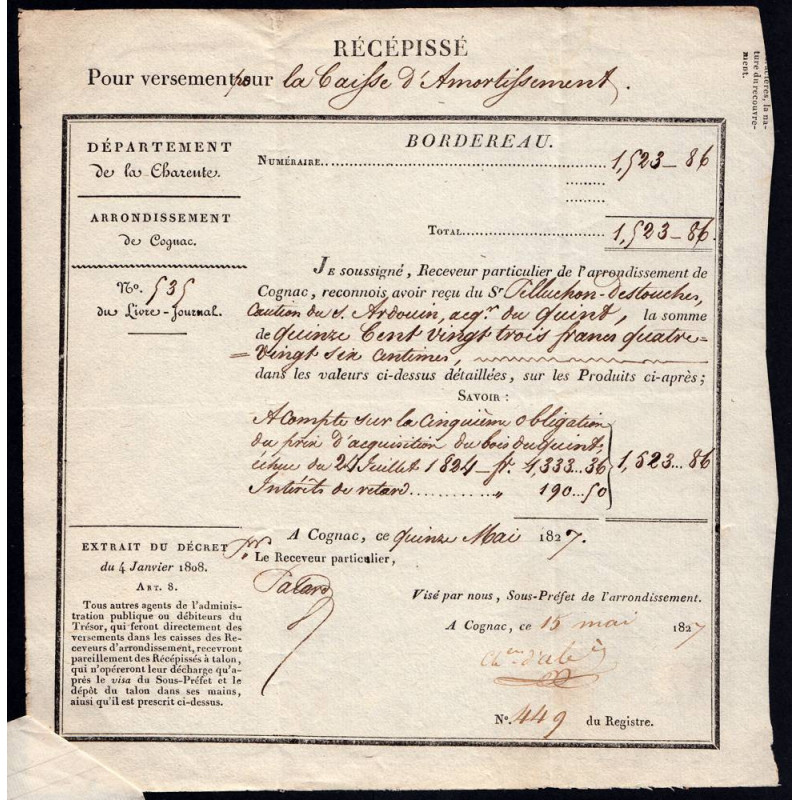 RÉCÉPISSÉ
Pour versement pour la Caisse d'Amortissement.
ractères, la na-
ture du recouvre-
ment.
DÉPARTEMENT
de la Charente.
ARRONDISSEMENT
de Cognac.
N.º 535
du Livre-Journal.
BORDEREAU.
NUMÉRAIRE 1,523-86
TOTAL 1,523-86.
JE soussigné, Receveur particulier de l'arrondissement de
Cognac, reconnois avoir reçu du Sr Pelluchon-Destouches,
Caution du s. Ardouin, acqr. du Quint, la somme
de quinze Cent vingt trois francs quatre-
=vingt six centimes,
dans les valeurs ci-dessus détaillées, sur les Produits ci-après;
SAVOIR:
A Compte sur la Cinquième obligation
du prix d'acquisition du bois du quint,
échue du 24 Juillet 1824 - fr. 1,333..36
Intérêts de retard........ " 190..50
1,523..86
A Cognac, ce quinze Mai 1827.
Pr. Le Receveur particulier,
EXTRAIT DU DÉCRET
du 4 Janvier 1808.
ART. 8.
Tous autres agents de l'adminis-
tration publique ou débiteurs du
Trésor, qui feront directement des
versements dans les caisses des Re-
ceveurs d'arrondissement, recevront
pareillement des Récépissés à talon,
qui n'opéreront leur décharge qu'a-
près le visa du Sous-Préfet et le
dépôt du talon dans ses mains,
ainsi qu'il est prescrit ci-dessus.
Visé par nous, Sous-Préfet de l'arrondissement.
A Cognac, ce 15 mai 1827
N.º 449 du Registre.